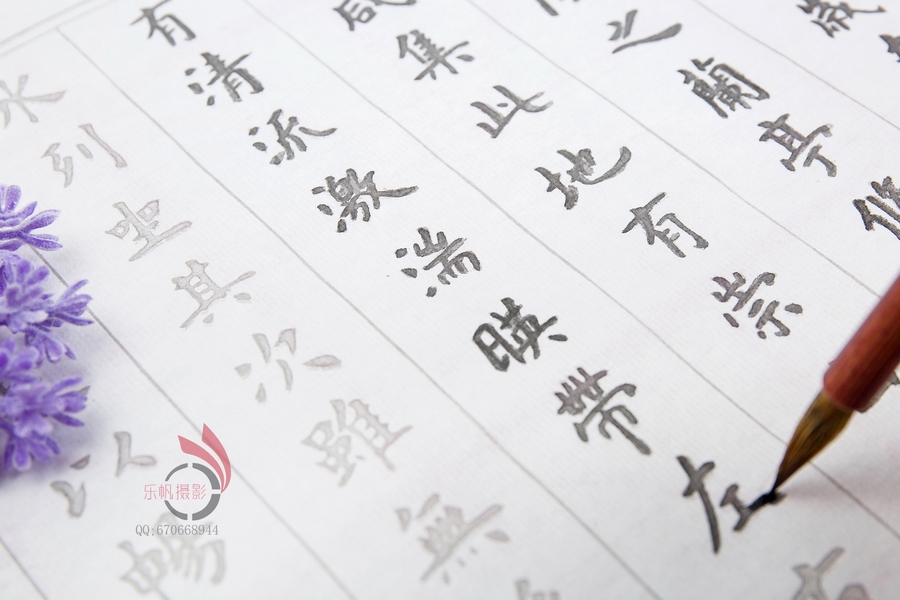 歲
之蘭亭修
咸集此地有崇
有清流激湍映帶左
水列坐其次雖無
以暢
乐帆摄影
QQ:670668944